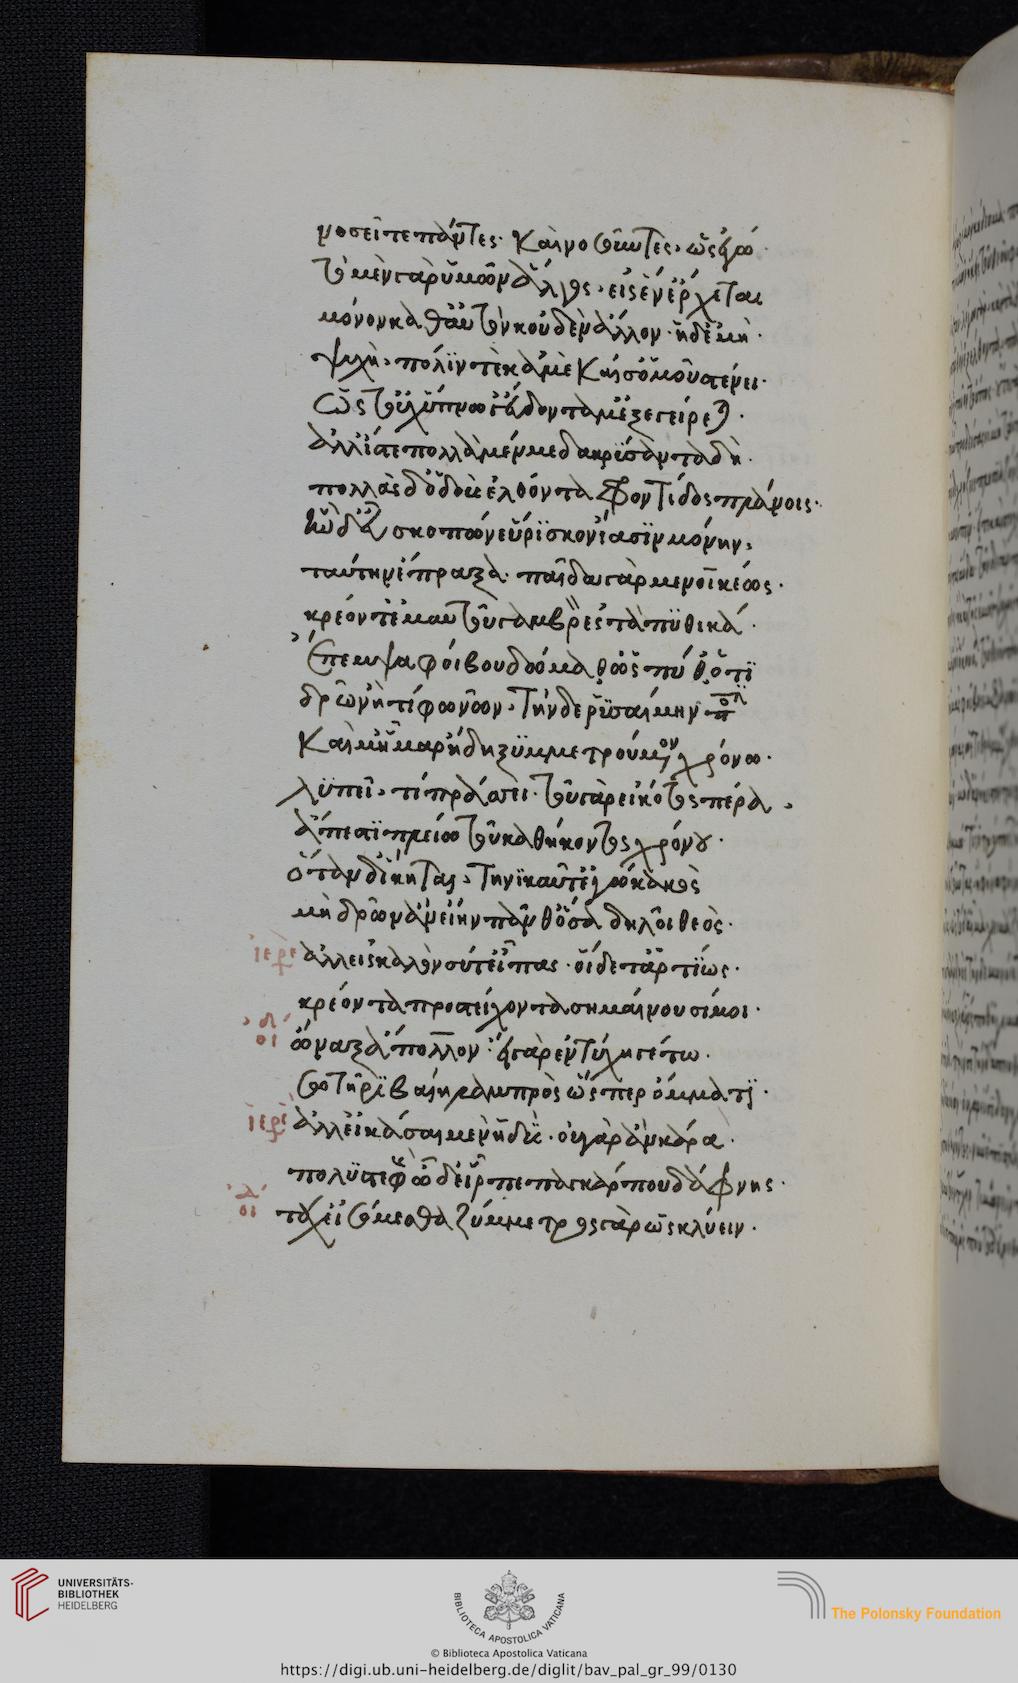 νοσεῖτε πάντες· καὶ νοσοῦντες, ὡς ἐγὼ·
τὸ μὲν γὰρ ὑμῶν ἄλγος, εἰς ἓν ἔρχεται
μόνον καθ' αὑτὸν κοὐδέν' ἄλλον· ἡ δ' ἐμὴ·
ψυχὴ, πόλιν τε κἀμὲ καὶ σ' ὁμοῦ στένει·
ὥς τ' οὐχ ὕπνω εὕδοντα μ' ἐξεγείρετε·
ἀλλ' ἴστε πολλὰ μέν με δακρύσαντα δὴ·
πολλὰς δ' ὁδοὺς ἐλθόντα φροντίδος πλάνοις·
ἣν δ' εὖ σκοπῶν εὕρισκον ἴασιν μόνην,
ταύτην ἔπραξα· παῖδα γὰρ μενοικέως·
κρέοντ' ἐμαυτοῦ γαμβρὸν ἐς τὰ πυθικὰ·
ἔπεμψα φοίβου δώμαθ' ὡς πύθοιθ' ὅ,τι
δρῶν ἢ τί φωνῶν, τήνδε ῥυσαίμην πόλ
καί μ' ἦμαρ ἤδη ξυμμετρούμενον χρόνω·
λυπεῖ, τί πράσσει· τοῦ γὰρ εἰκότος πέρα,
ἄπεστι πλείω τοῦ καθήκοντος χρόνου·
ὅταν δ' ἵκηται, τηνικαῦτ' ἐγὼ κακὸς
μὴ δρῶν ἂν εἴην πάνθ' ὅσα δηλοῖ θεὸς·
ἱερε ἀλλ' εἰς καλὸν σύ τ' εἶπας· οἵδε τ' ἀρτίως·
κρέοντα προστείχοντα σημαίνουσί μοι·
οιδ ὦναξ ἄπολλον· εἰ γὰρ ἐν τύχη γέ τω·
σωτῆρι βαίη λαμπρὸς ὥσπερ ὄμματι·
ἱερε ἀλλ' εἰκάσαι μὲν ἡδὺς· οὐ γὰρ ἂν κάρα·
πολυστεφὴς ὧδ' εἷρπε παγκάρπου δάφνης·
οιδ τάχ' εἰσόμεσθα ξύμμετρος γὰρ ὡς κλύειν·
UNIVERSITÄTS-
BIBLIOTHEK
HEIDELBERG
BIBLIOTECA APOSTOLICA VATICANA
The Polonsky Foundation
© Biblioteca Apostolica Vaticana
https://digi.ub.uni-heidelberg.de/diglit/bav_pal_gr_99/0130